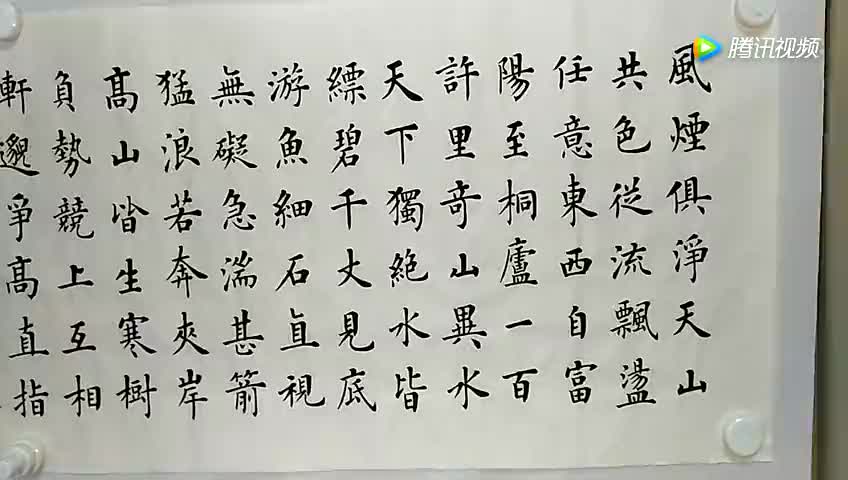 風煙俱淨天山
共色從流飄蕩
任意東西自富
陽至桐廬一百
許里奇山異水
天下獨絶水皆
縹碧千丈見底
游魚細石直視
無礙急湍甚箭
猛浪若奔夾岸
高山皆生寒樹
負勢競上互相
軒邈爭高直指
腾讯视频